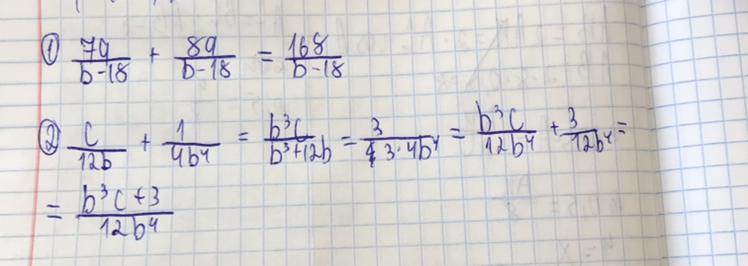 ① 79/(b-18) + 89/(b-18) = 168/(b-18)
② c/(12b) + 1/(4b⁴) = b³c/(b³+12b) = 3/(3·4b⁴) = b³c/(12b⁴) + 3/(12b⁴) =
= (b³c+3)/(12b⁴)